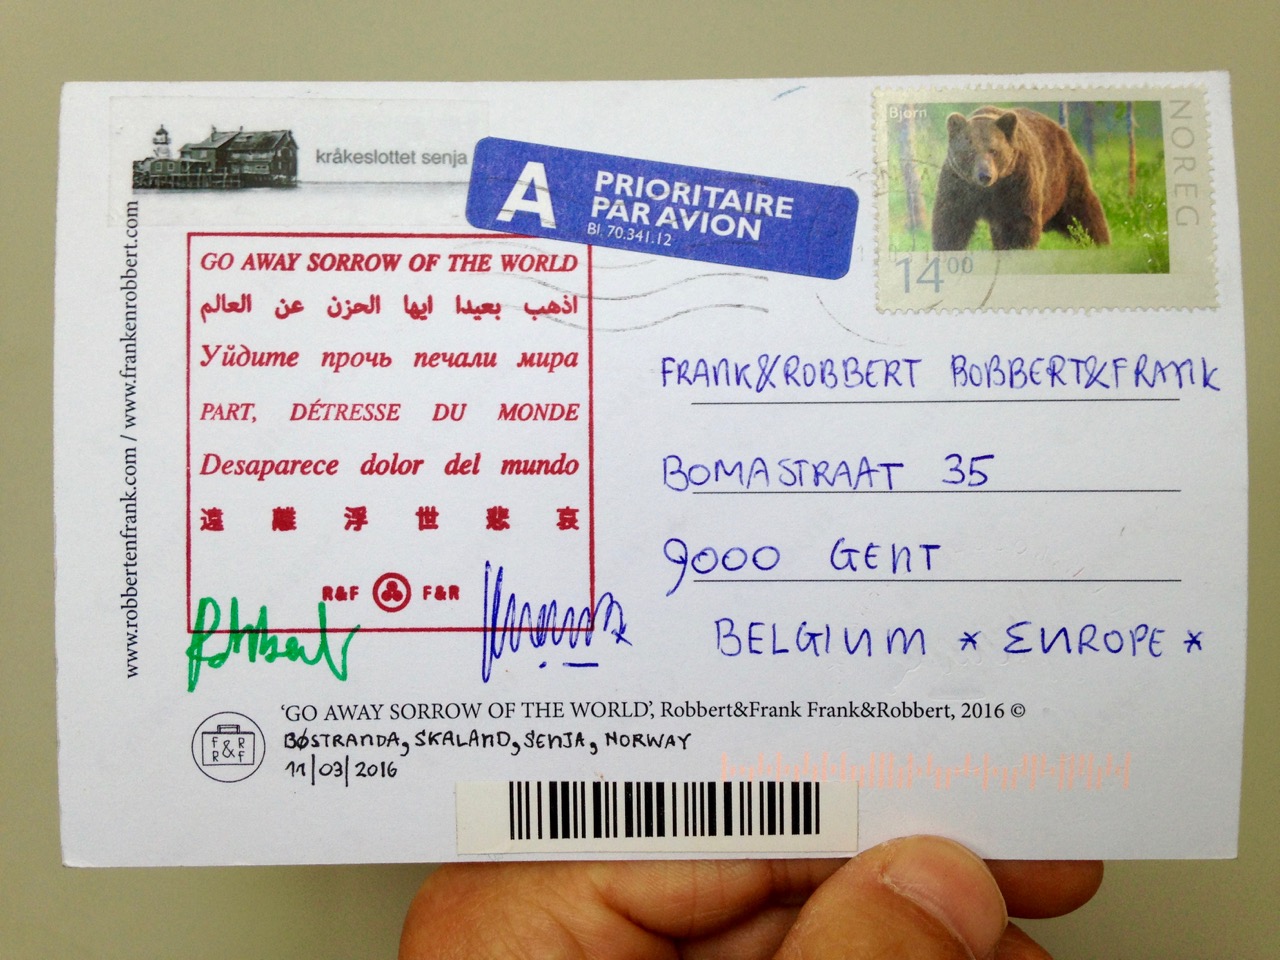 kråkeslottet senja
A PRIORITAIRE
PAR AVION
Bl. 70.341.12
Bjørn
NOREG
14 00
www.robbertenfrank.com / www.frankenrobbert.com
GO AWAY SORROW OF THE WORLD
اذهب بعيدا ايها الحزن عن العالم
Уйдите прочь печали мира
PART, DÉTRESSE DU MONDE
Desaparece dolor del mundo
遠離浮世悲哀
R&F F&R
Robbert
FRANK&ROBBERT BOBBERT&FRANK
BOMASTRAAT 35
9000 GENT
BELGIUM * EUROPE *
'GO AWAY SORROW OF THE WORLD', Robbert&Frank Frank&Robbert, 2016 ©
F&R
R&F
BØSTRANDA, SKALAND, SENJA, NORWAY
11/03/2016